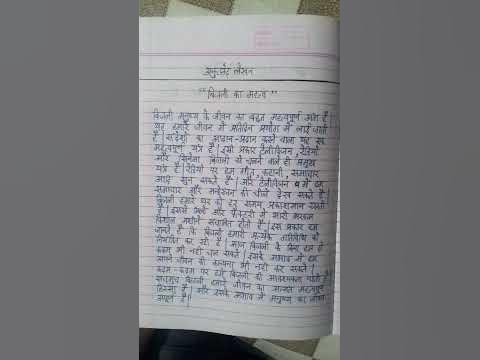 अनुच्छेद लेखन
"बिजली का महत्व"
बिजली मनुष्य के जीवन का बहुत महत्वपूर्ण अंग है।
यह हमारे जीवन में प्रतिदिन प्रयोग में लाई जाती
है। संदेशों का आदान-प्रदान करने वाला यह एक
महत्वपूर्ण यंत्र है। इसी प्रकार टेलीविजन, रेडियो
और सिनेमा बिजली से चलने वाले ही प्रमुख
यंत्र है। रेडियो पर हम गीत, कहानी, समाचार
आदि सुन सकते है। और टेलीविजन में हम
समाचार और मनोरंजन की चीजें देख सकते है।
बिजली हमारे घर को हर समय प्रकाशमान रखती
है। इससे मिलों और फैक्टरी में भारी भरकम
विशाल मशीनें संचालित होती है। इस प्रकार हम
जानते है कि बिजली हमारी प्रत्येक गतिविधि को
नियंत्रित कर रही है। आज बिजली के बिना हम दो
कदम भी नहीं चल सकते। इसके अभाव में हम
अपने जीवन की कल्पना भी नहीं कर सकते।
कदम-कदम पर हमें बिजली की आवश्यकता पड़ती है।
सचमुच बिजली हमारे जीवन का अत्यंत महत्वपूर्ण
हिस्सा है। और इसके अभाव में मनुष्य का जीवन
अपूर्ण है।